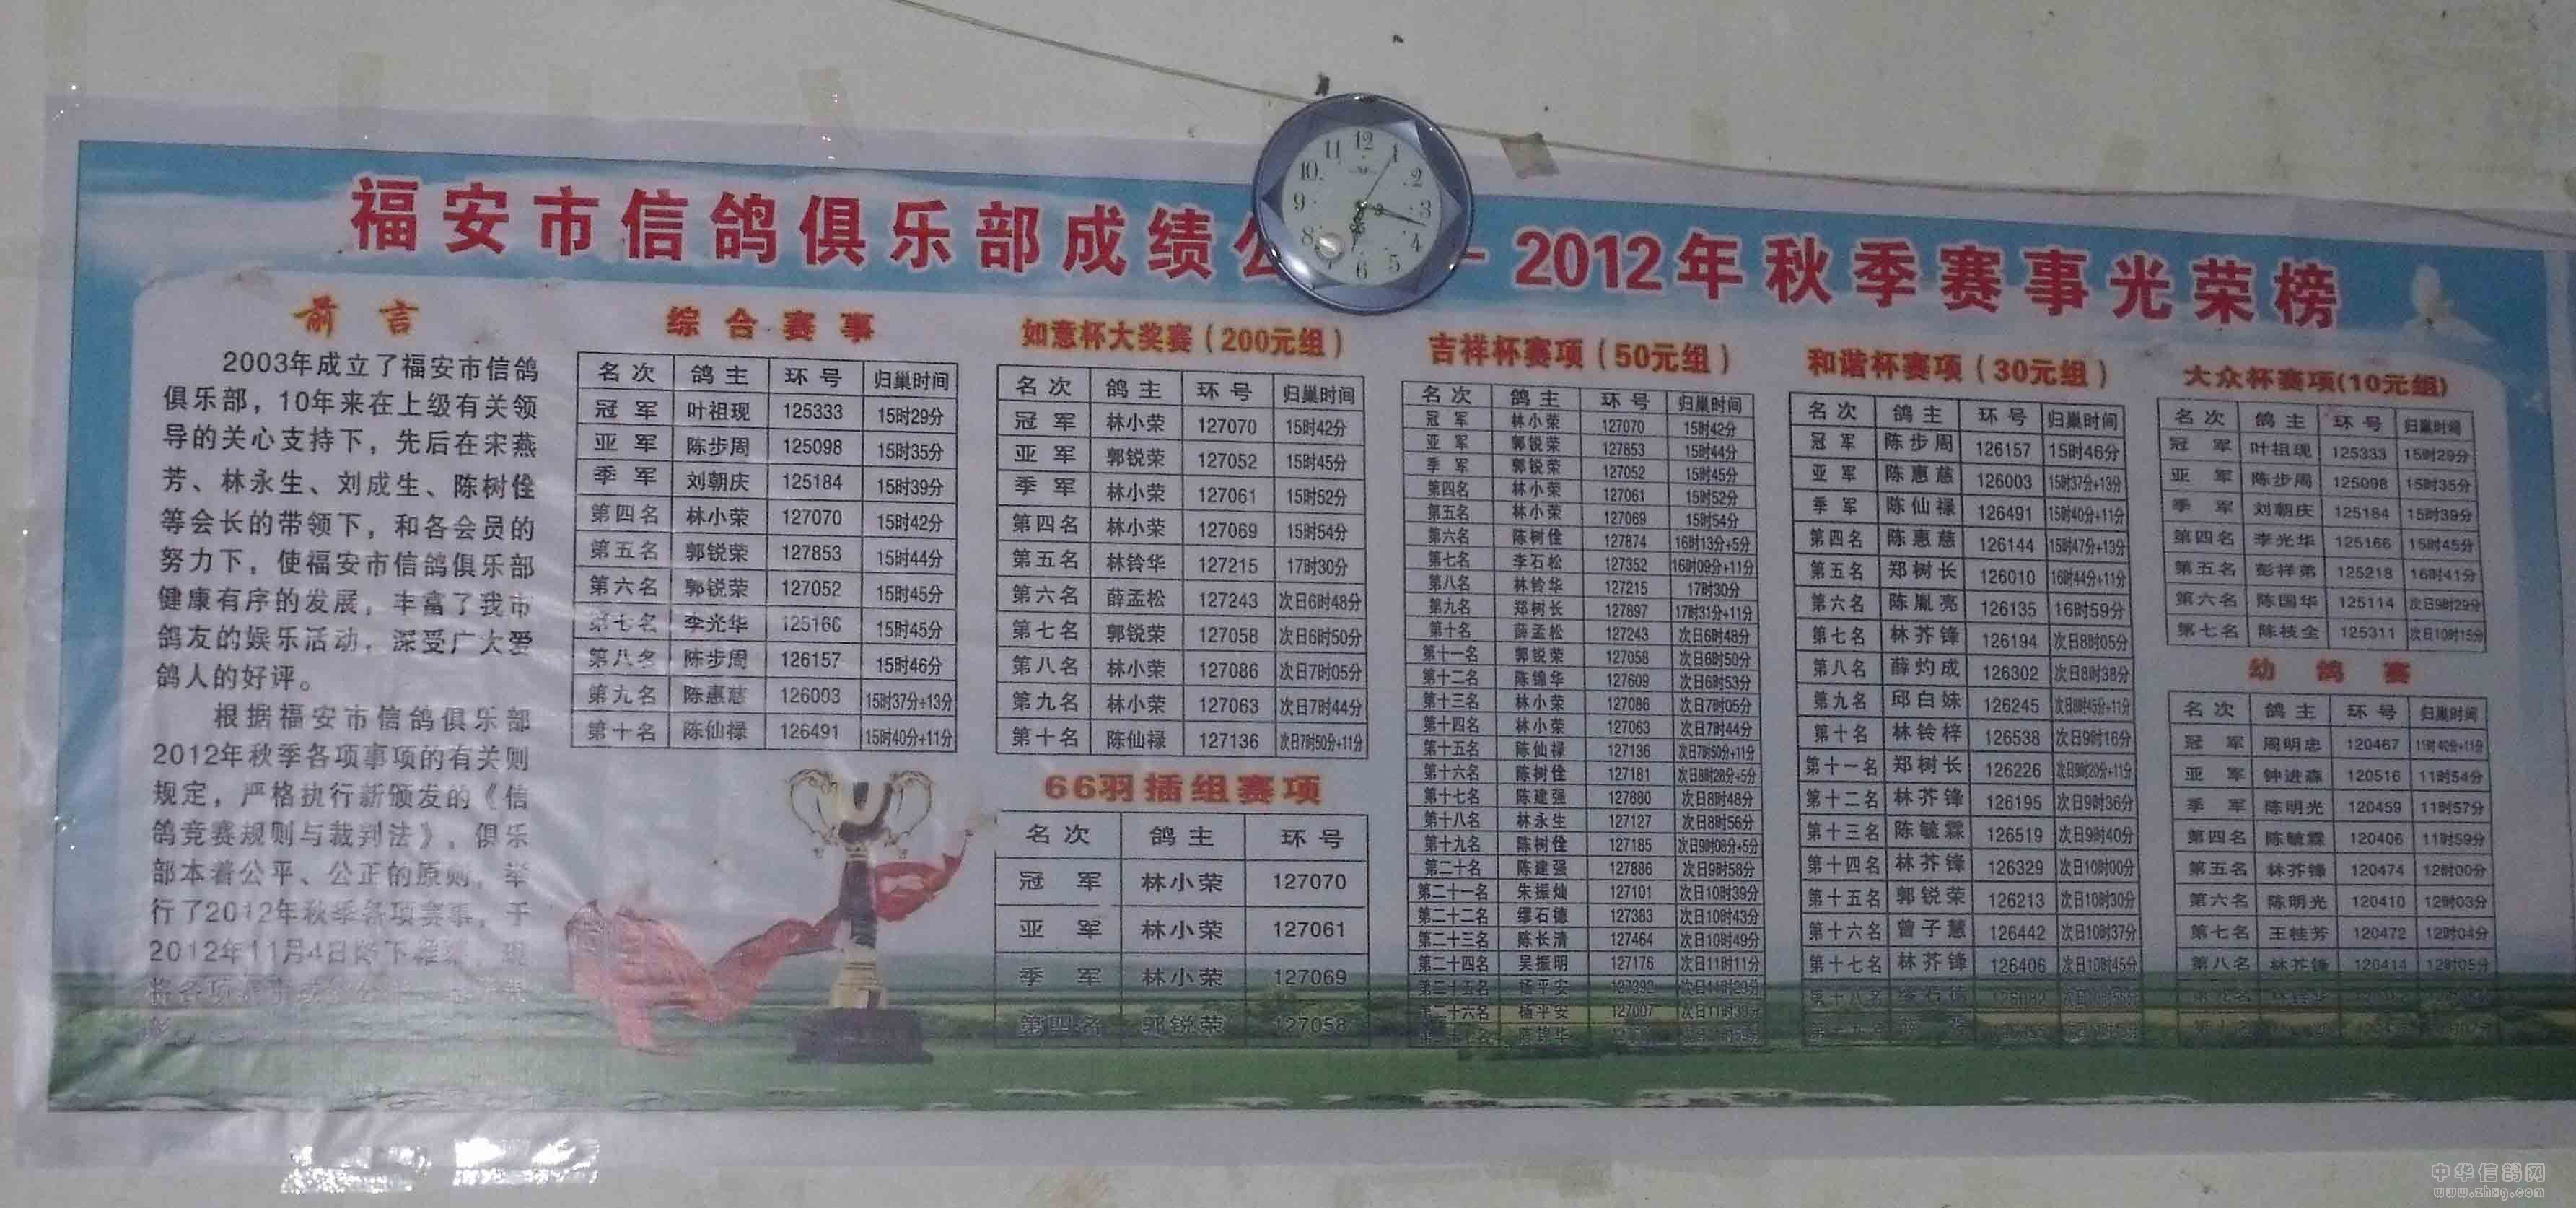 福安市信鸽俱乐部成绩公 — 2012年秋季赛事光荣榜
12
1
2
3
4
5
6
8
9
10
11
前言
2003年成立了福安市信鸽
俱乐部，10年来在上级有关领
导的关心支持下，先后在宋燕
芳、林永生、刘成生、陈树佺
等会长的带领下，和各会员的
努力下，使福安市信鸽俱乐部
健康有序的发展，丰富了我市
鸽友的娱乐活动，深受广大爱
鸽人的好评。
根据福安市信鸽俱乐部
2012年秋季各项事项的有关则
规定，严格执行新颁发的《信
鸽竞赛规则与裁判法》，俱乐
部本着公平、公正的原则，举
行了2012年秋季各项赛事，于
2012年11月4日
综合赛事
名次 鸽主 环号 归巢时间
冠军 叶祖现 125333 15时29分
亚军 陈步周 125098 15时35分
季军 刘朝庆 125184 15时39分
第四名 林小荣 127070 15时42分
第五名 郭锐荣 127853 15时44分
第六名 郭锐荣 127052 15时45分
第七名 李光华 125166 15时45分
第八名 陈步周 126157 15时46分
第九名 陈惠慈 126003 15时37分+13分
第十名 陈仙禄 126491 15时40分+11分
如意杯大奖赛（200元组）
名次 鸽主 环号 归巢时间
冠军 林小荣 127070 15时42分
亚军 郭锐荣 127052 15时45分
季军 林小荣 127061 15时52分
第四名 林小荣 127069 15时54分
第五名 林铃华 127215 17时30分
第六名 薛孟松 127243 次日6时48分
第七名 郭锐荣 127058 次日6时50分
第八名 林小荣 127086 次日7时05分
第九名 林小荣 127063 次日7时44分
第十名 陈仙禄 127136 次日7时50分+11分
66羽插组赛项
名次 鸽主 环号
冠军 林小荣 127070
亚军 林小荣 127061
季军 林小荣 127069
第四名 郭锐荣 127058
吉祥杯赛项（50元组）
名次 鸽主 环号 归巢时间
冠军 林小荣 127070 15时42分
亚军 郭锐荣 127853 15时44分
季军 郭锐荣 127052 15时45分
第四名 林小荣 127061 15时52分
第五名 林小荣 127069 15时54分
第六名 陈树佺 127874 16时13分+5分
第七名 李石松 127352 16时09分+11分
第八名 林铃华 127215 17时30分
第九名 郑树长 127897 17时31分+11分
第十名 薛孟松 127243 次日6时48分
第十一名 郭锐荣 127058 次日6时50分
第十二名 陈锦华 127609 次日6时53分
第十三名 林小荣 127086 次日7时05分
第十四名 林小荣 127063 次日7时44分
第十五名 陈仙禄 127136 次日7时50分+11分
第十六名 陈树佺 127181 次日8时28分+5分
第十七名 陈建强 127880 次日8时48分
第十八名 林永生 127127 次日8时56分
第十九名 陈树佺 127185 次日9时08分+5分
第二十名 陈建强 127886 次日9时58分
第二十一名 朱振灿 127101 次日10时39分
第二十二名 缪石德 127383 次日10时43分
第二十三名 陈长清 127464 次日10时49分
第二十四名 吴振明 127176 次日11时11分
第二十五名 杨平安 127392 次日11时29分
第二十六名 杨平安 127007 次日11时30分
第二十七名 陈锦华
和谐杯赛项（30元组）
名次 鸽主 环号 归巢时间
冠军 陈步周 126157 15时46分
亚军 陈惠慈 126003 15时37分+13分
季军 陈仙禄 126491 15时40分+11分
第四名 陈惠慈 126144 15时47分+13分
第五名 郑树长 126010 16时44分+11分
第六名 陈胤亮 126135 16时59分
第七名 林芥锋 126194 次日8时05分
第八名 薛灼成 126302 次日8时38分
第九名 邱白妹 126245 次日8时45分+11分
第十名 林铃梓 126538 次日9时16分
第十一名 郑树长 126226 次日9时20分+11分
第十二名 林芥锋 126195 次日9时36分
第十三名 陈毓霖 126519 次日9时40分
第十四名 林芥锋 126329 次日10时00分
第十五名 郭锐荣 126213 次日10时30分
第十六名 曾子慧 126442 次日10时37分
第十七名 林芥锋 126406 次日10时45分
第十八名
大众杯赛项(10元组)
名次 鸽主 环号 归巢时间
冠军 叶祖现 125333 15时29分
亚军 陈步周 125098 15时35分
季军 刘朝庆 125184 15时39分
第四名 李光华 125166 15时45分
第五名 彭祥弟 125218 16时41分
第六名 陈国华 125114 次日9时29分
第七名 陈枝全 125311 次日10时15分
幼鸽赛
名次 鸽主 环号 归巢时间
冠军 周明忠 120467 11时40分+11分
亚军 钟进森 120516 11时54分
季军 陈明光 120459 11时57分
第四名 陈毓霖 120406 11时59分
第五名 林芥锋 120474 12时00分
第六名 陈明光 120410 12时03分
第七名 王桂芳 120472 12时04分
第八名 林芥锋 120414 12时05分
中华信鸽网
www.zhxg.com